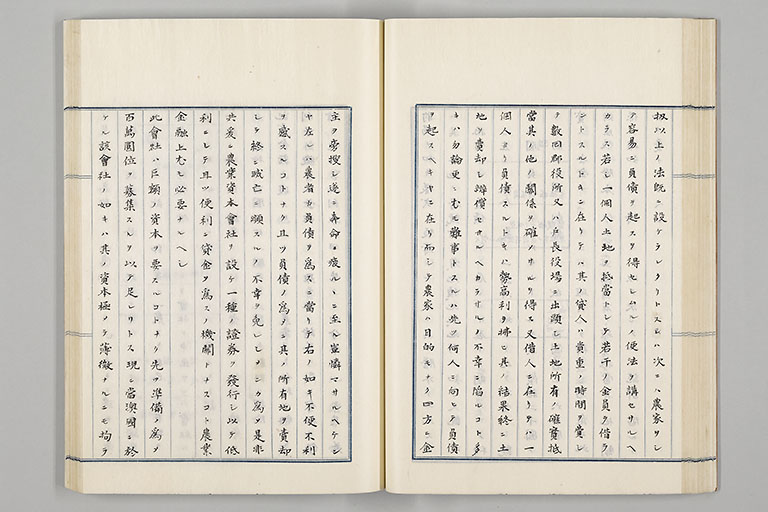 扱以上ノ法既ニ設ケラレタリトスレハ次ニハ農家ヲシ
テ容易ニ負債ヲ起スヲ得セシムルノ便法ヲ講セサルヘ
カラス若シ一個人土地ヲ抵當トシテ若干ノ金員ヲ借ラ
ントスルトキニ在リテハ其ノ貸人ハ貴重ノ時間ヲ費シ
ヲ數回郡役所又ハ戸長役場ニ出頭シ土地所有ノ確實抵
當其ノ他ノ關係ヲ確メサルヲ得ス又借人ニ在リテハ一
個人ヨリ負債スルトキハ勢高利ヲ拂ヒ其ノ結果終ニ土
地ヲ賣却シ辨償セサルヘカラサルノ不幸ニ陷ルコト多
キハ勿論更ニ尤モ難事トスルハ先ツ何人ニ向ヒテ負債
ヲ起スヘキヤニ在リ而シテ農家ハ目的モナク四方ニ金
主ヲ旁搜シ遂ニ奔命ニ疲ルヽニ至ル豈憐マサルヘケン
ヤ左レハ農者ヲ負債ヲ爲スニ當リテ右ノ如キ不便不利
ヲ感スルコトナク且ツ負債ノ爲メニ其ノ所有地ヲ賣却
シテ終ニ滅亡ニ瀕スルノ不幸ヲ免レシナンカ爲メ是非
共爰ニ農業資本會社ヲ設ケ一種ノ證券ヲ發行シ以テ低
利ニシテ且ツ便利ニ貸金ヲ爲スノ機關トナスコト農業
金融上尤モ必要ナルヘシ
此會社ハ巨額ノ資本ヲ要スルコトナク先ツ準備ノ爲メ
百萬圓位ヲ募集スルヲ以テ足レリトス現ニ當澳國ニ於
ケル該會社ノ如キハ其ノ資本極メテ薄微ナルニモ拘ラ